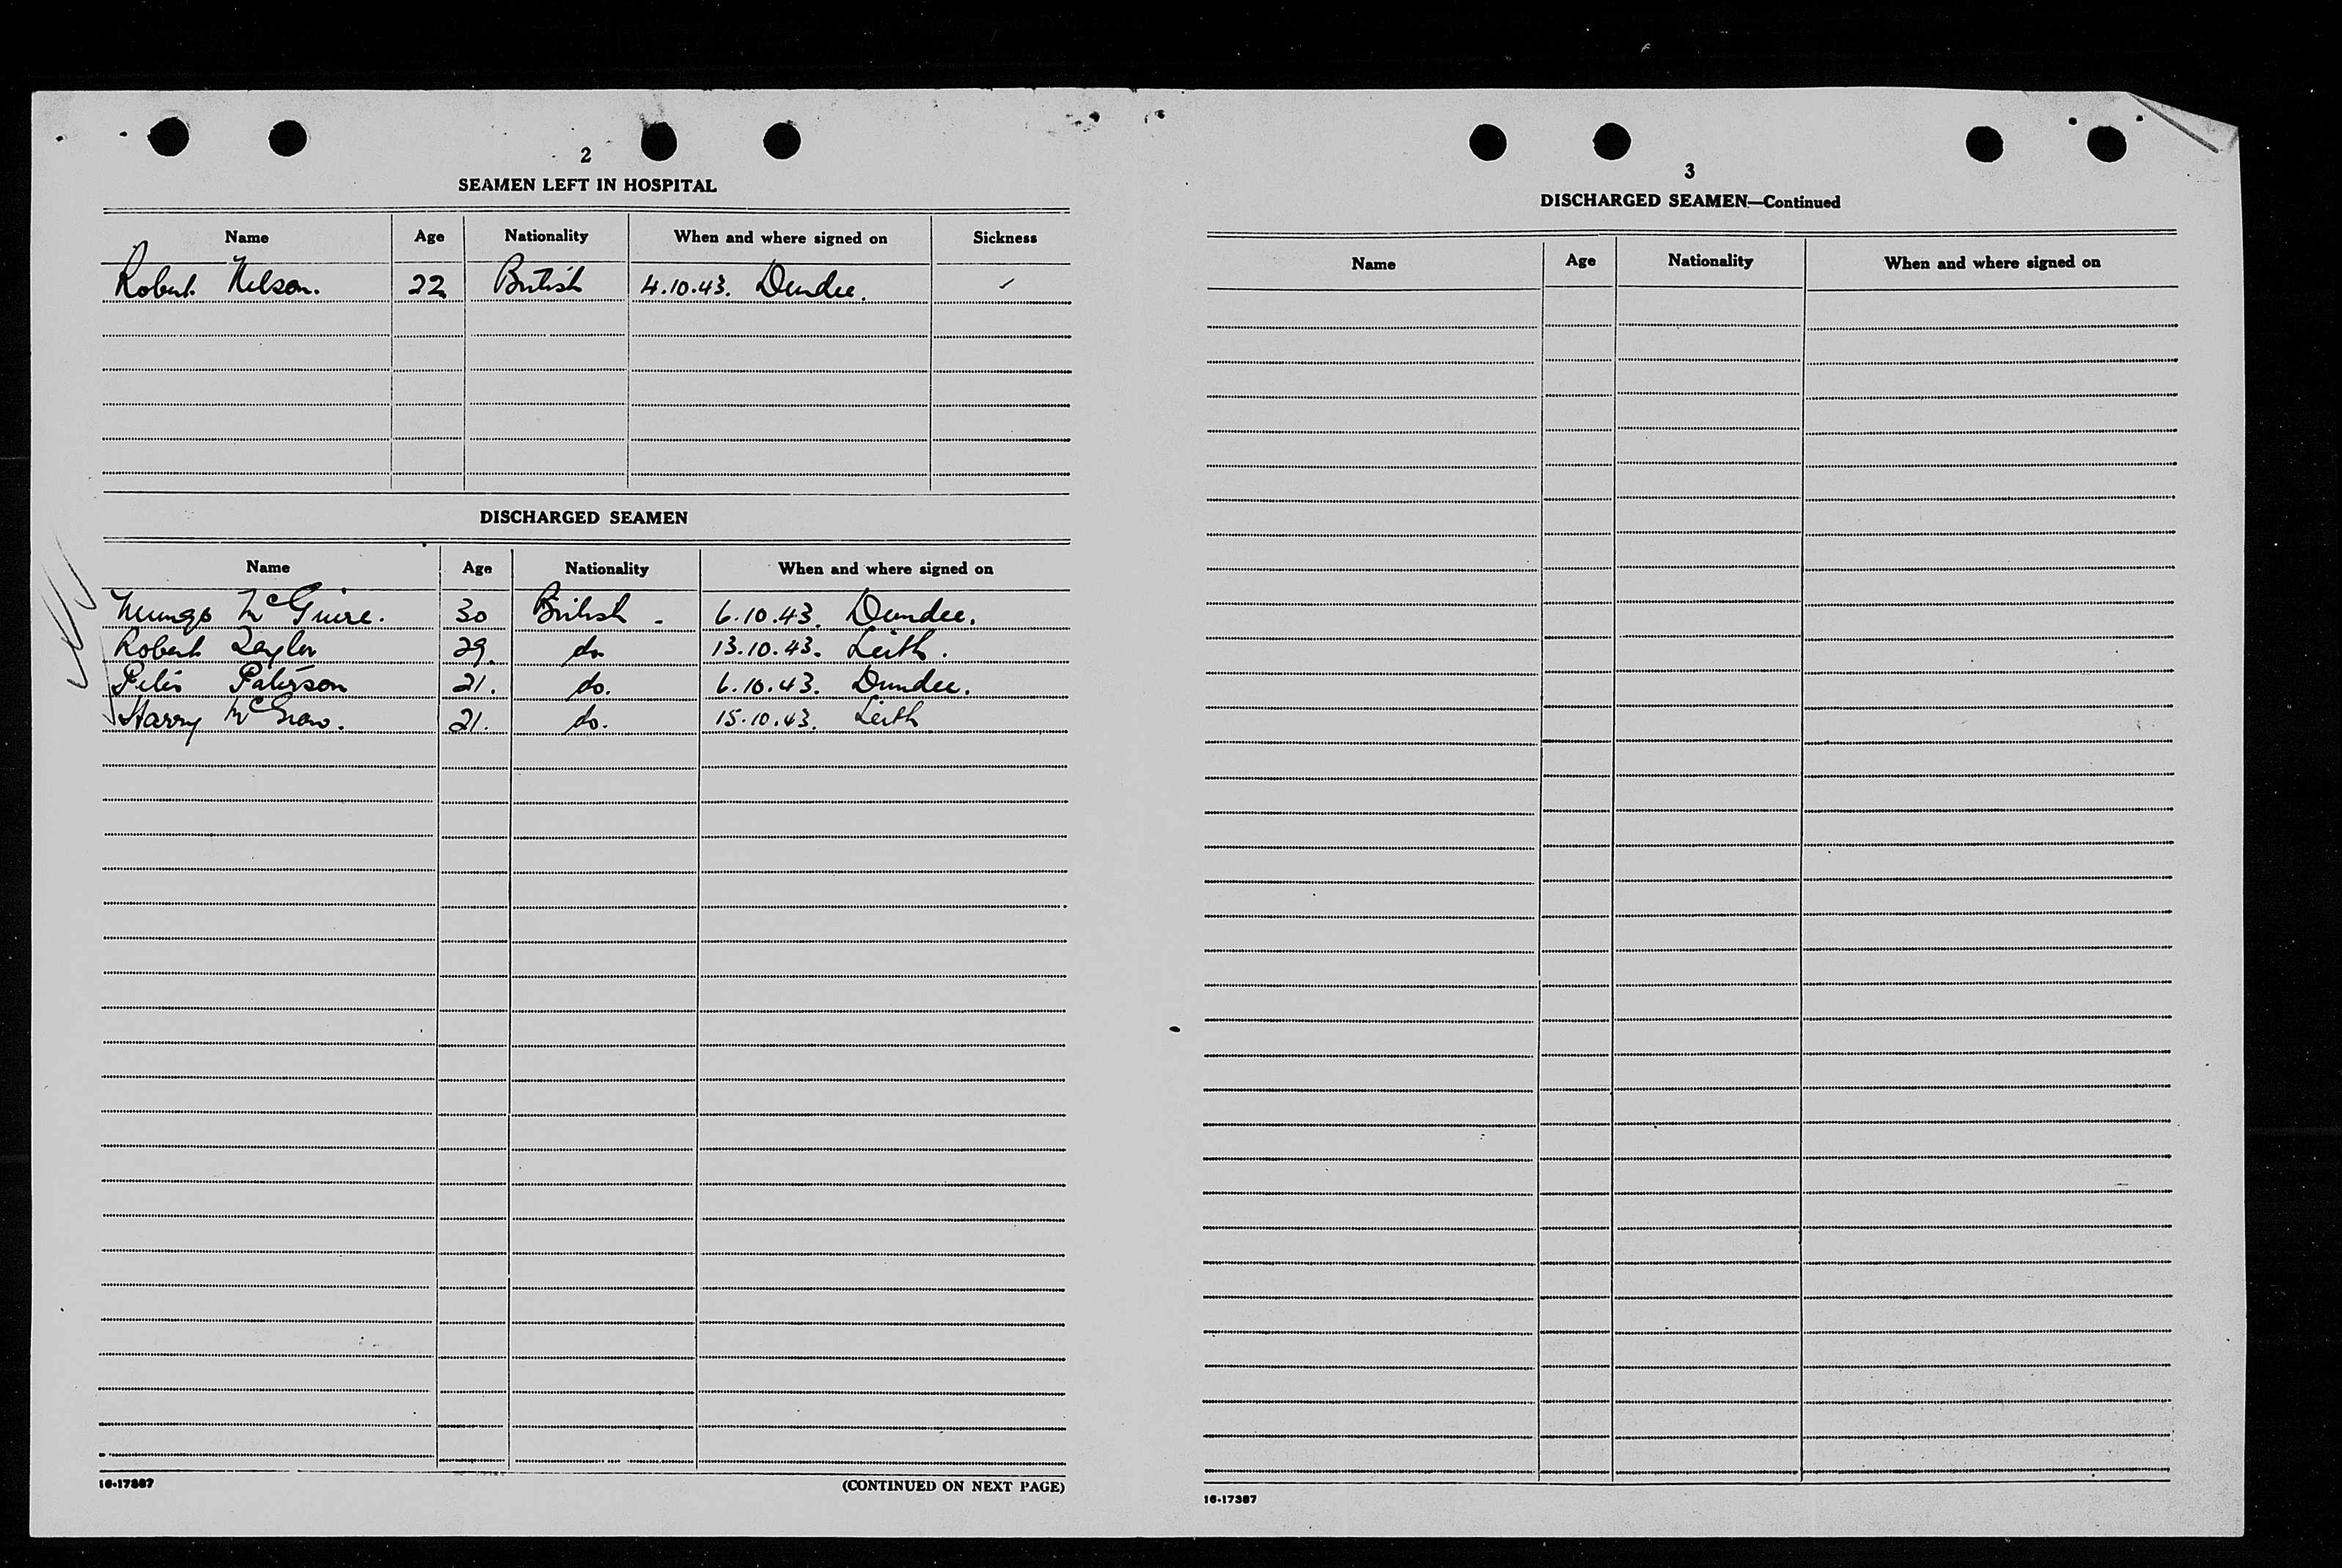 2
SEAMEN LEFT IN HOSPITAL
Name Age Nationality When and where signed on Sickness
Robert Nelson. 22 British 4.10.43. Dundee. ✓
DISCHARGED SEAMEN
Name Age Nationality When and where signed on
Mungo McGuire. 30 British - 6.10.43. Dundee.
Robert Taylor 29. do 13.10.43. Leith.
Peter Paterson 21. do. 6.10.43. Dundee.
Harry McGraw. 21. do. 15.10.43. Leith
16-17387
(CONTINUED ON NEXT PAGE)
3
DISCHARGED SEAMEN—Continued
Name Age Nationality When and where signed on
16-17387